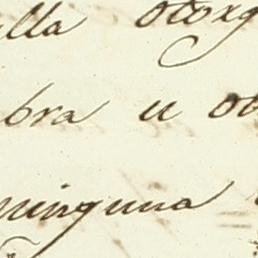 ella otorg
bra u ot
ninguna